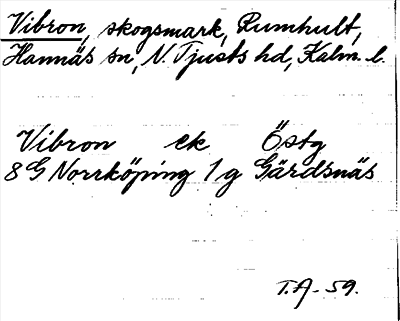 Vibron, skogsmark, Rumhult,
Hannäs sn, N. Tjusts hd, Kalm. l.
Vibron ek Östg
8G Norrköping 1g Gärdsnäs
T.A. - 59.